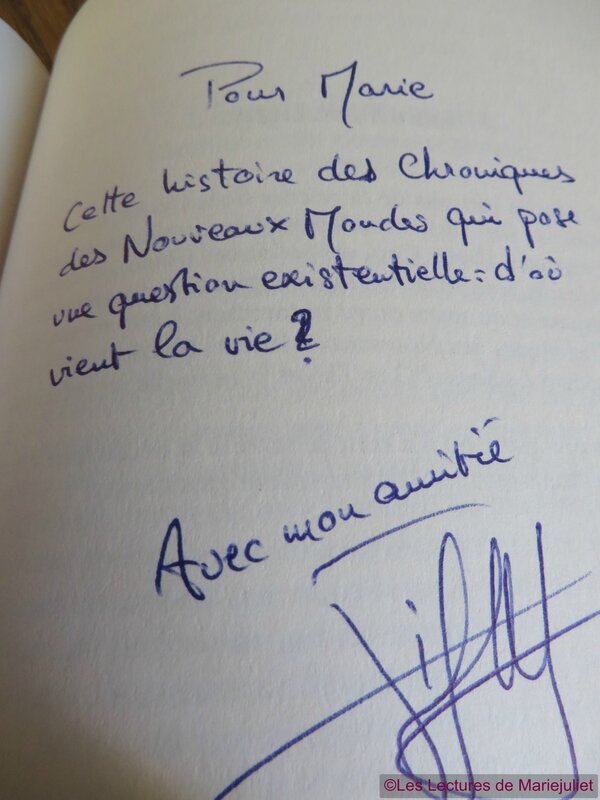 Pour Marie
Cette histoire des Chroniques
des Nouveaux Mondes qui pose
une question existentielle : d'où
vient la vie ?
Avec mon amitié
©Les Lectures de Mariejuliet